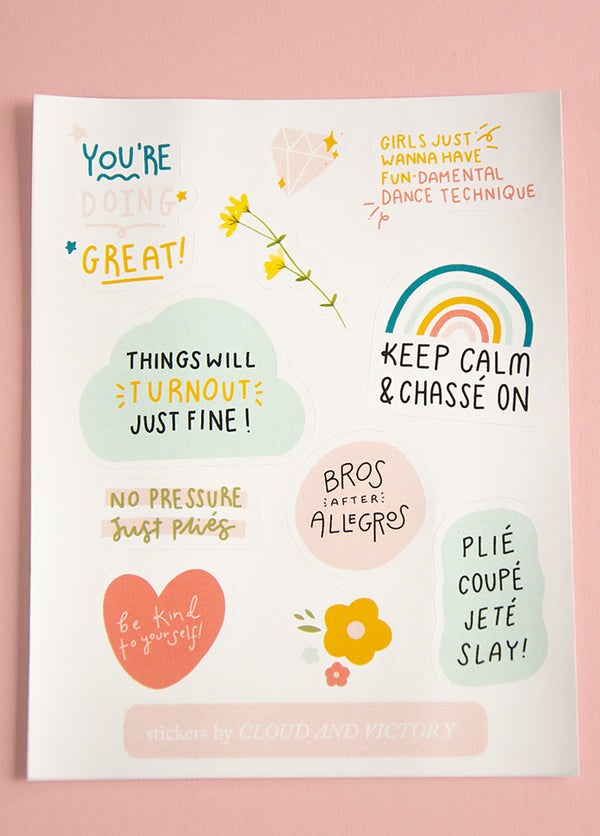 YOU'RE
DOING
GREAT!
GIRLS JUST
WANNA HAVE
FUN-DAMENTAL
DANCE TECHNIQUE
THINGS WILL
TURNOUT
JUST FINE!
KEEP CALM
& CHASSÉ ON
NO PRESSURE
Just pliés
BROS
AFTER
ALLEGROS
PLIÉ
COUPÉ
JETÉ
SLAY!
be kind
to yourself!
stickers by CLOUD AND VICTORY